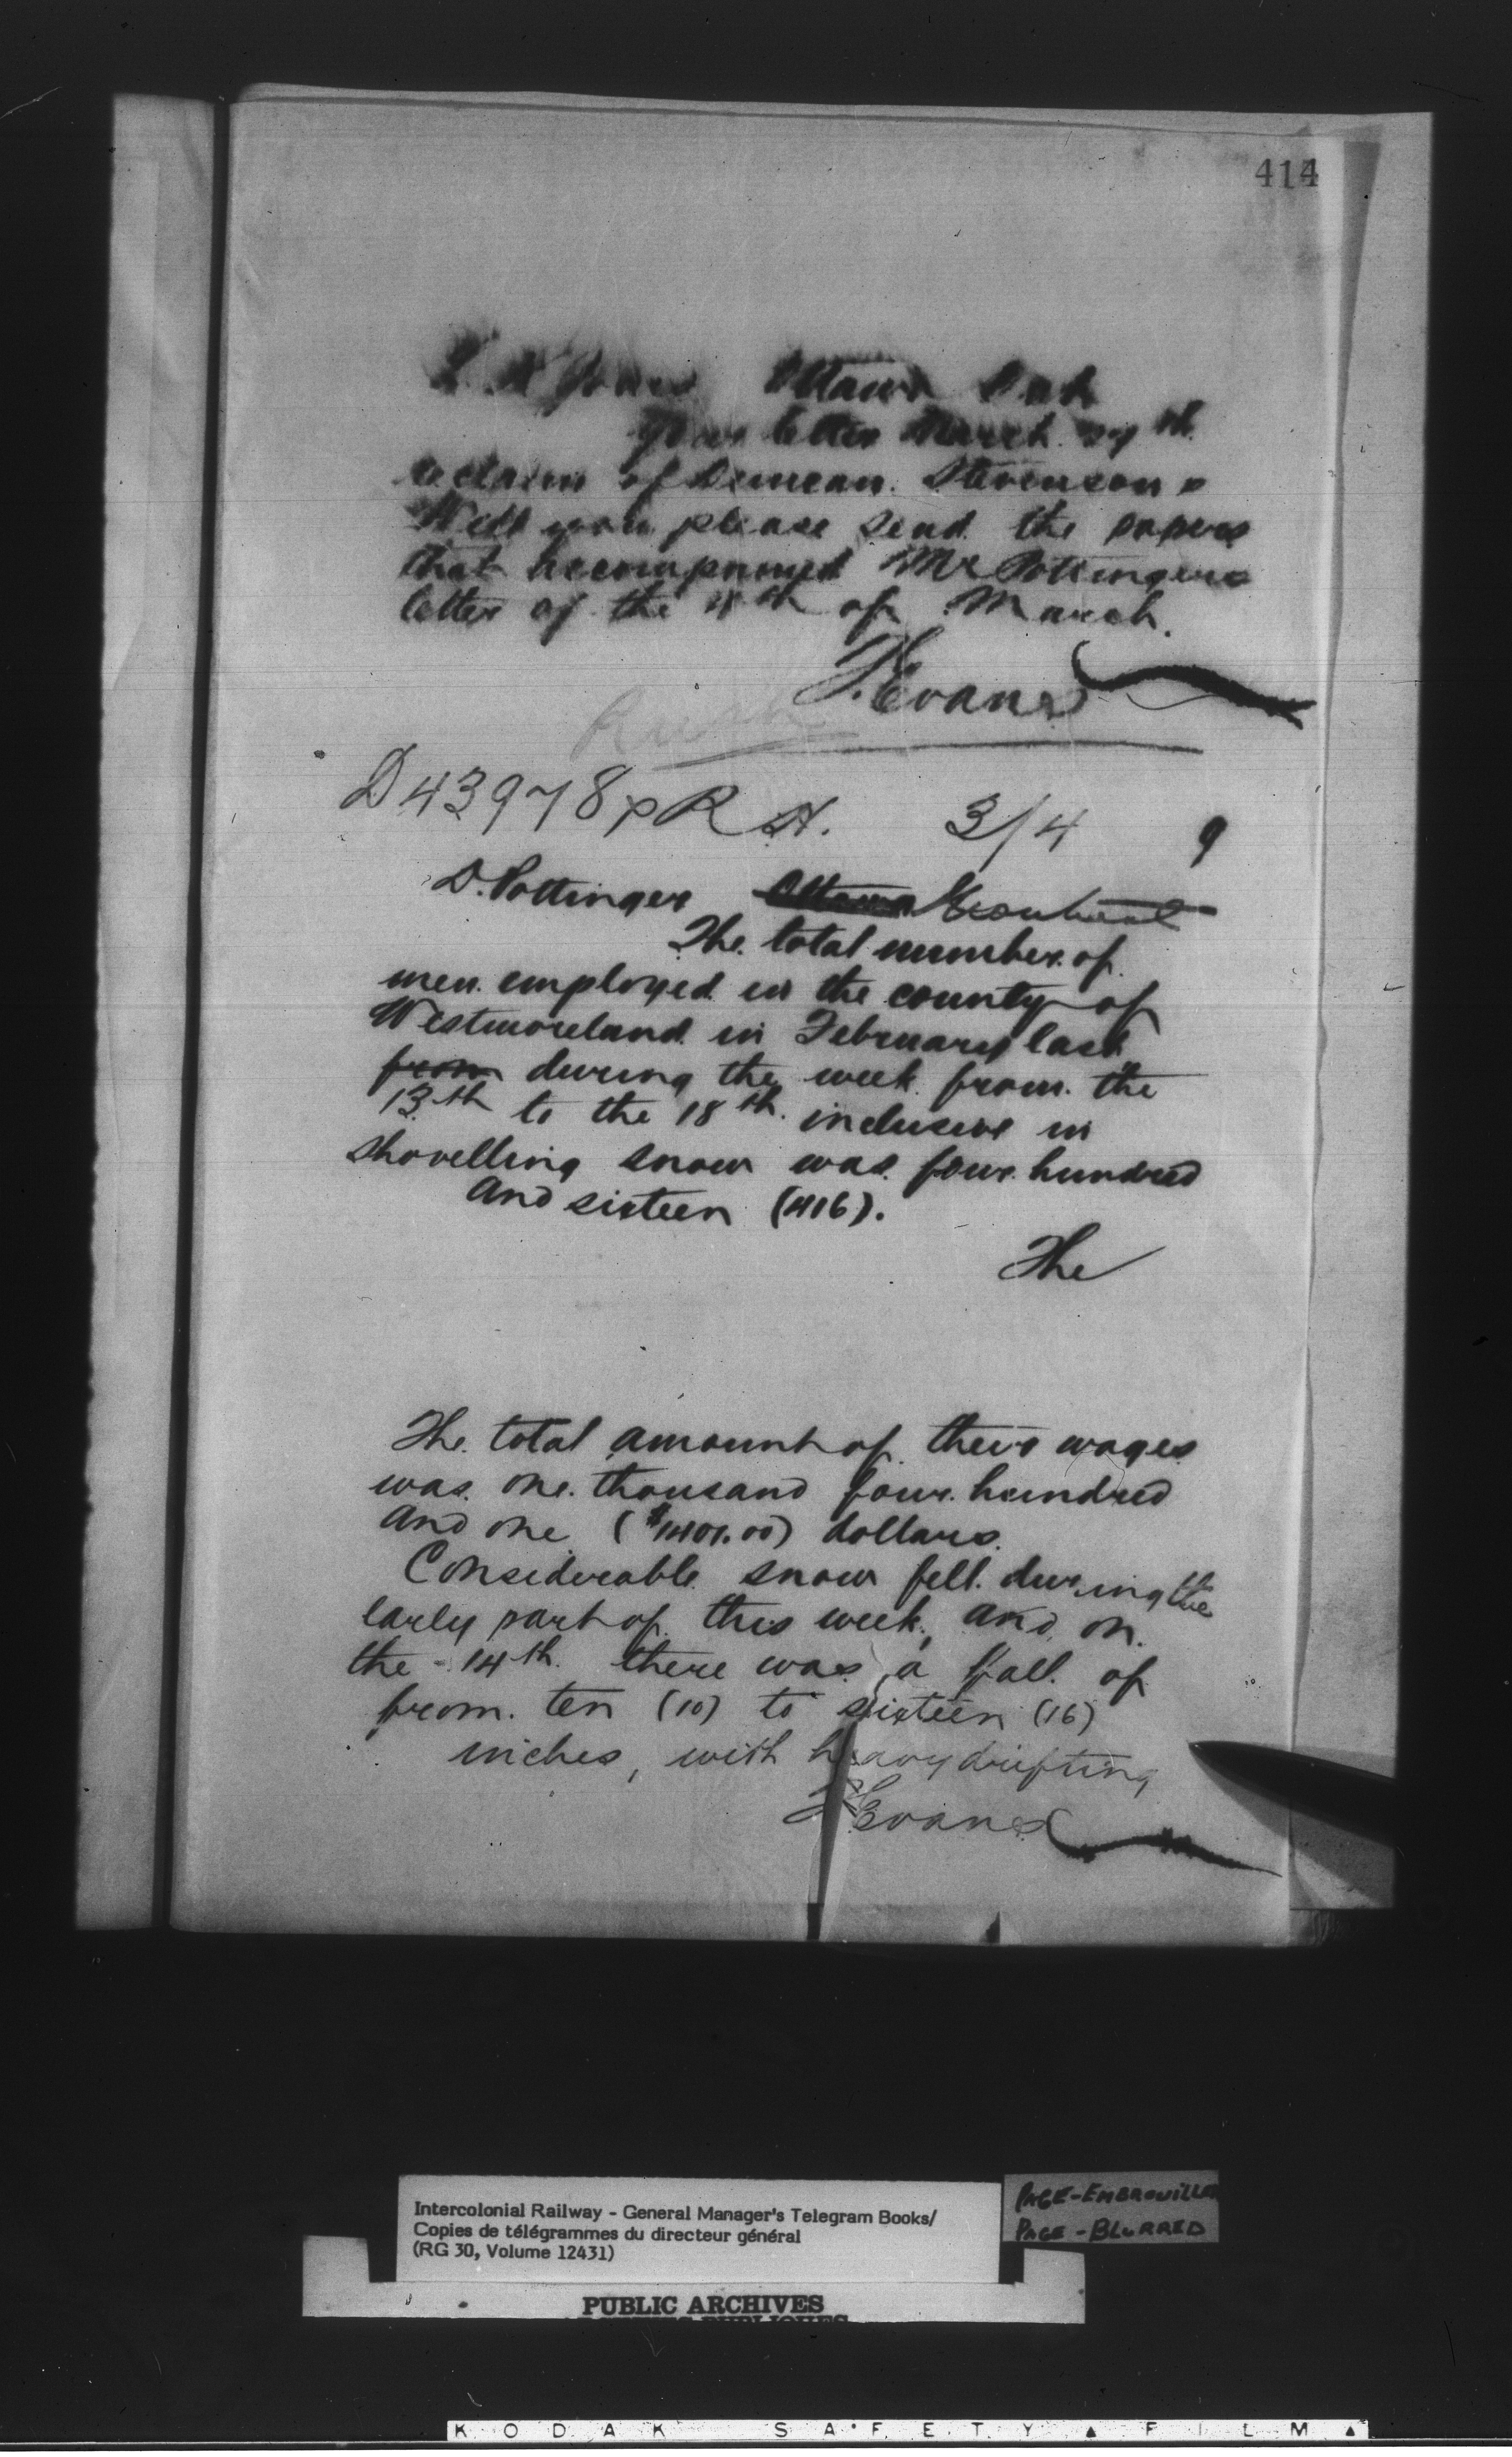 414
L. K. Jones Ottawa Ont
Your letter March 29th
re claim of Duncan Stevenson.
Will you please send the papers
that accompanied Mr Pottingers
letter of the of March.
T. Evans
Rush
D43978 R 3/4 9
D. Pottinger Ottawa Montreal
The total number of
men employed in the county of
Westmoreland in February last
from during the week from the
13th to the 18th inclusive in
shovelling snow was four hundred
and sixteen (416).
The
The total amount of their wages
was one thousand four hundred
and one ($1401.00) dollars.
Considerable snow fell during the
early part of this week, and on
the 14th there was a fall of
from ten (10) to sixteen (16)
inches, with heavy drifting
T. Evans
Intercolonial Railway - General Manager's Telegram Books/
Copies de télégrammes du directeur général
(RG 30, Volume 12431)
PAGE-EMBROUILLÉE
PAGE-BLURRED
PUBLIC ARCHIVES
KODAK SAFETY FILM